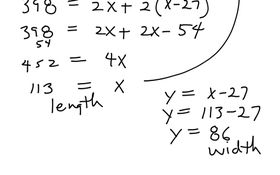 398 = 2x + 2(x-27)
398 = 2x + 2x - 54
54
452 = 4x
113 = x
length
y = x-27
y = 113-27
y = 86
width